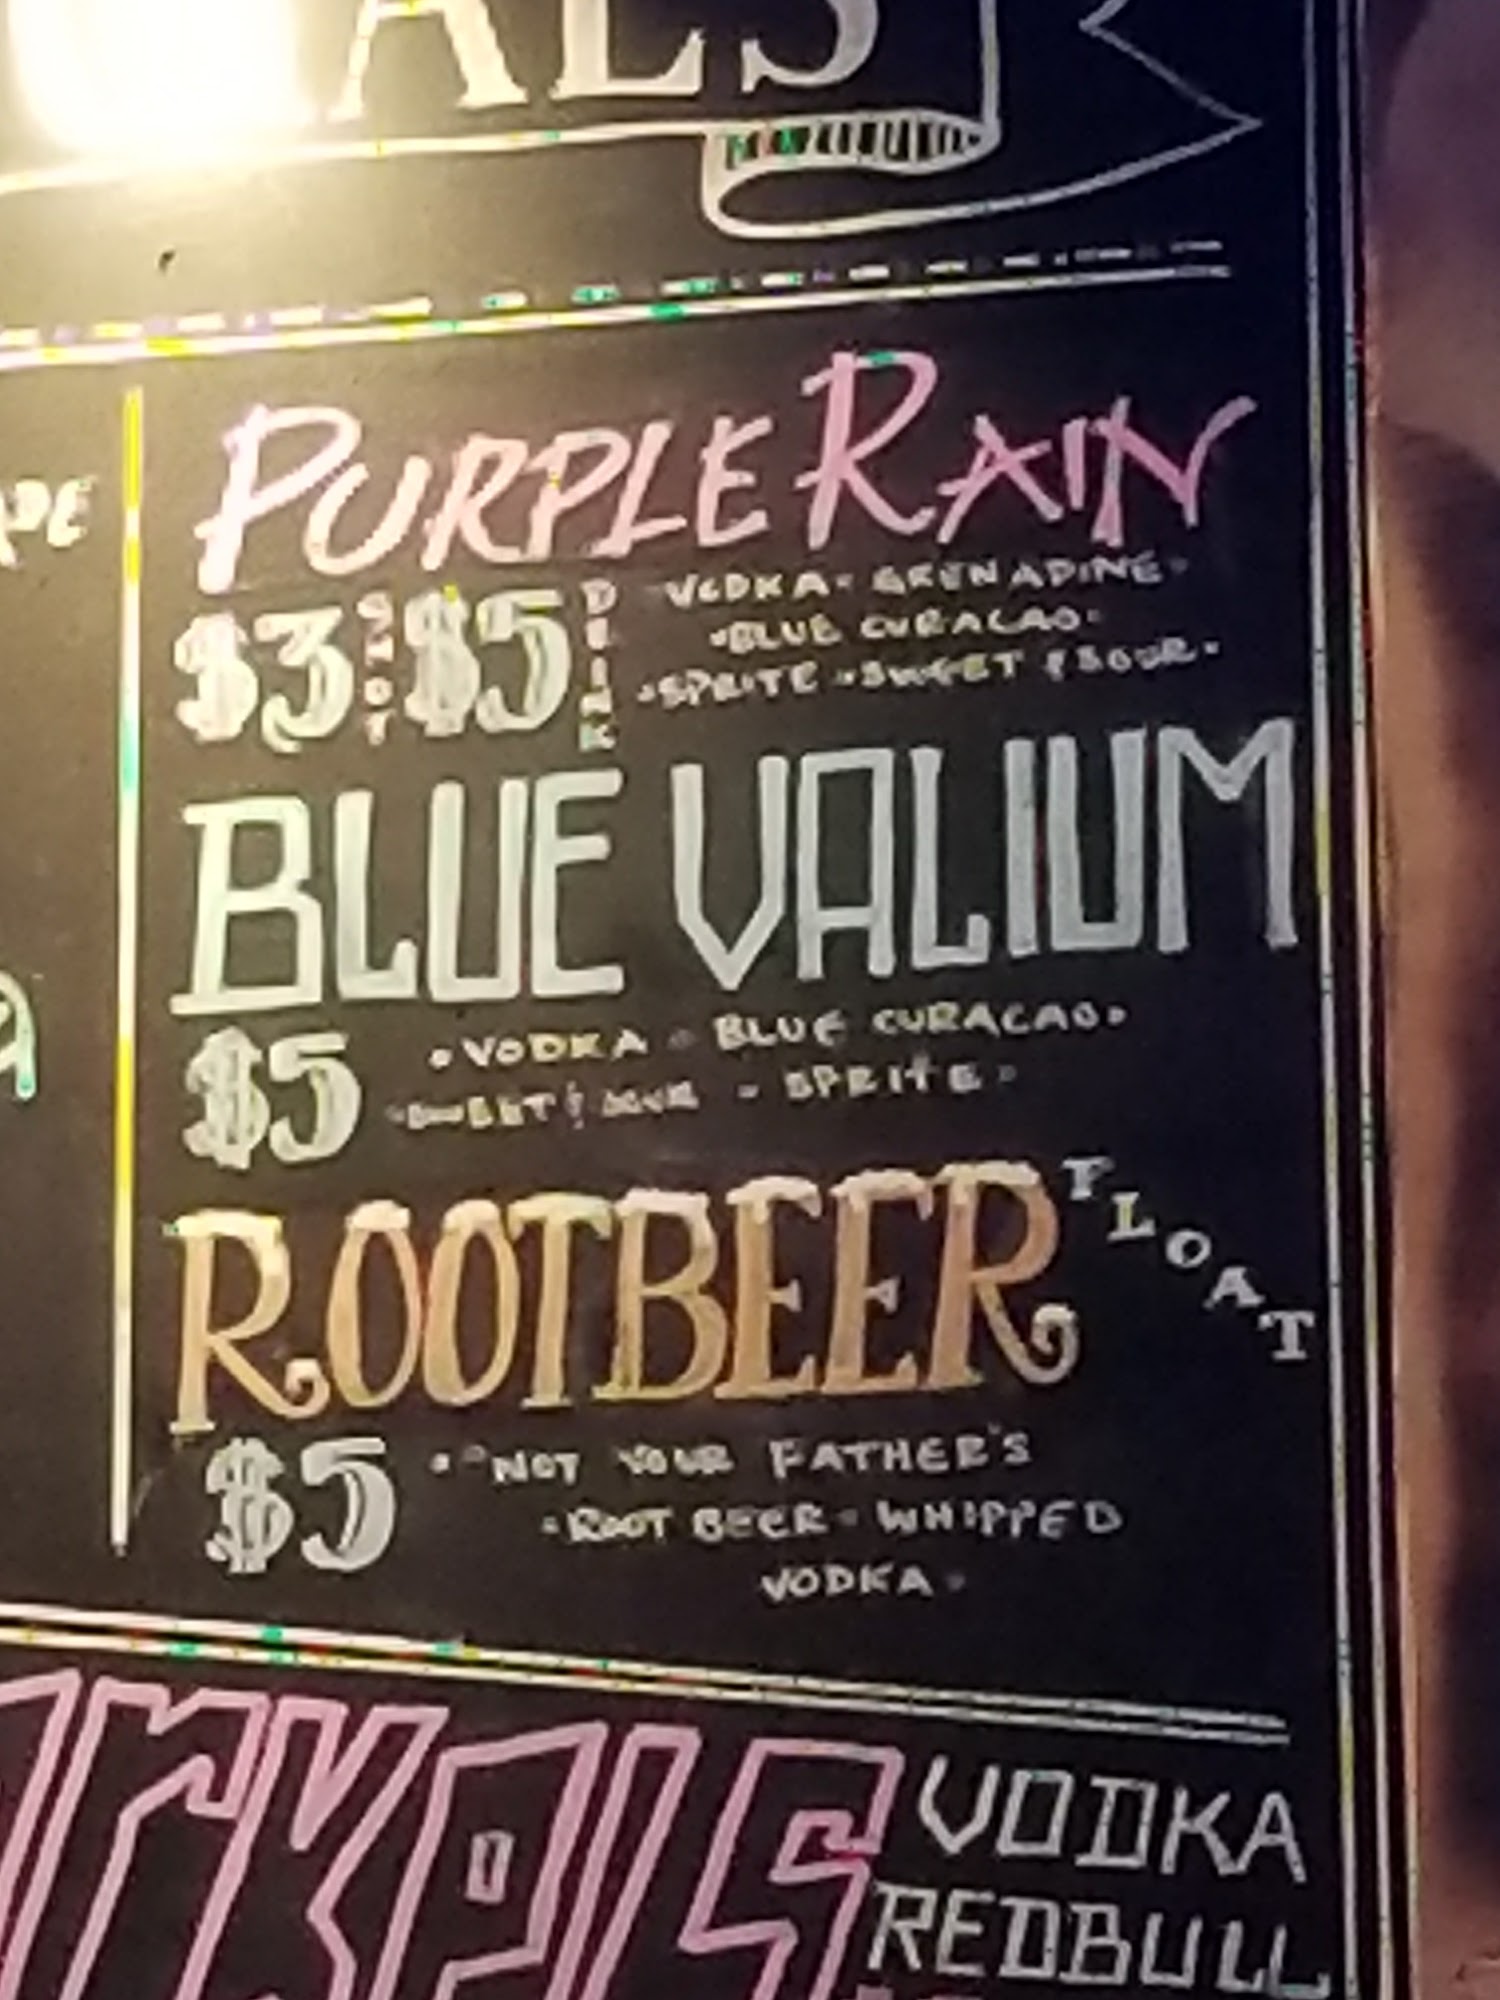 PURPLE RAIN
$3 SHOT $5 DRINK
VODKA · GRENADINE ·
· BLUE CURACAO ·
· SPRITE · SWEET & SOUR ·
BLUE VALIUM
$5 · VODKA · BLUE CURACAO ·
· SWEET & SOUR · SPRITE ·
ROOTBEER FLOAT
$5 · "NOT YOUR FATHER'S
· ROOT BEER · WHIPPED
VODKA ·
VODKA
REDBULL